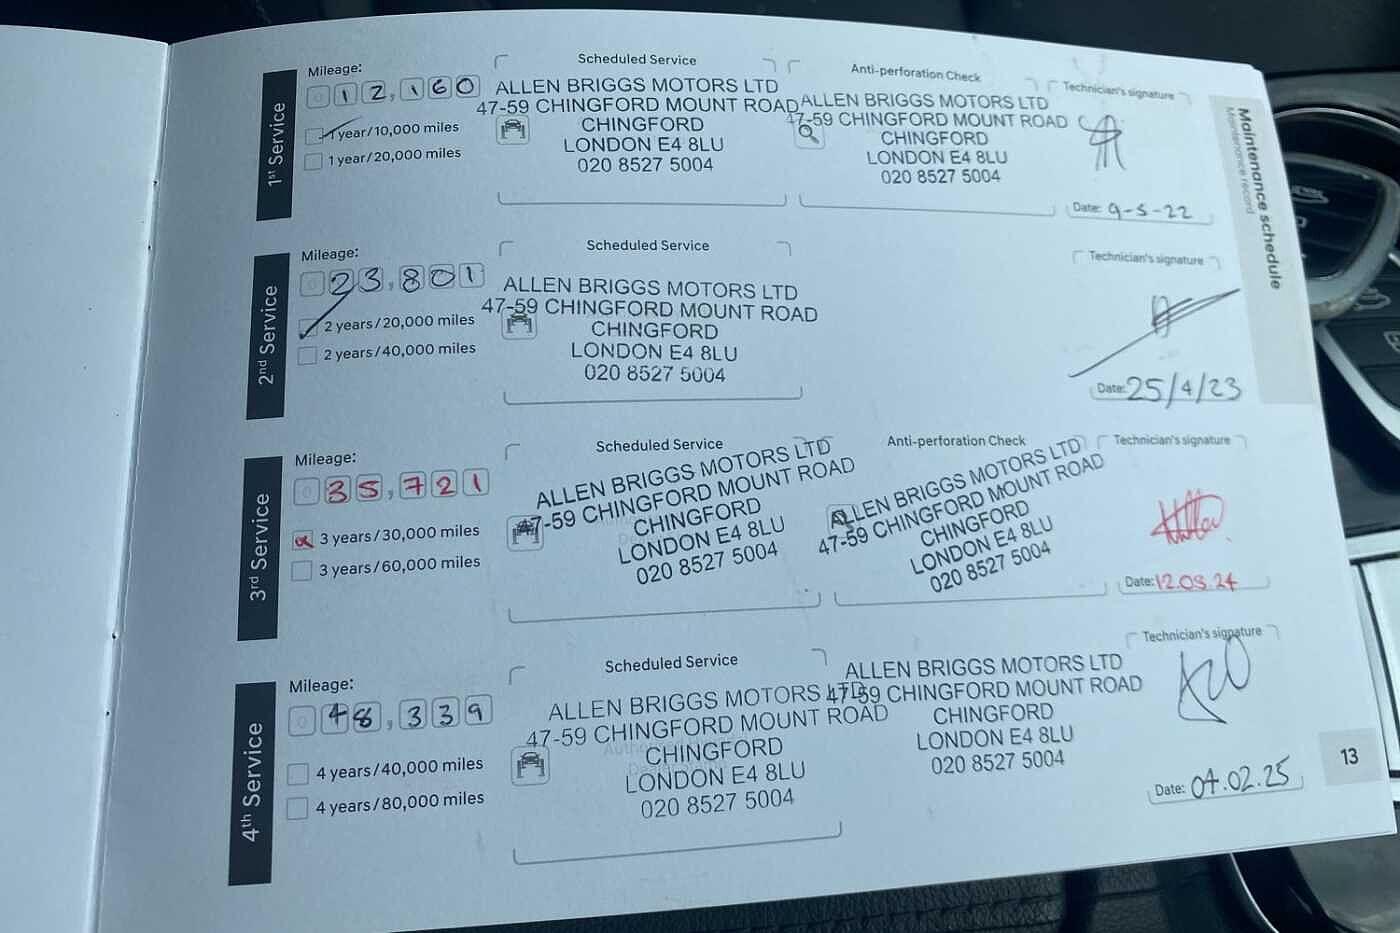 Maintenance schedule
Maintenance record
1st Service
Mileage:
0 1 2 , 1 6 0
1 year/10,000 miles
1 year/20,000 miles
Scheduled Service
ALLEN BRIGGS MOTORS LTD
47-59 CHINGFORD MOUNT ROAD
CHINGFORD
LONDON E4 8LU
020 8527 5004
Anti-perforation Check
ALLEN BRIGGS MOTORS LTD
47-59 CHINGFORD MOUNT ROAD
CHINGFORD
LONDON E4 8LU
020 8527 5004
Technician's signature
Date: 9-5-22
2nd Service
Mileage:
0 2 3 , 8 0 1
2 years/20,000 miles
2 years/40,000 miles
Scheduled Service
ALLEN BRIGGS MOTORS LTD
47-59 CHINGFORD MOUNT ROAD
CHINGFORD
LONDON E4 8LU
020 8527 5004
Technician's signature
Date: 25/4/23
3rd Service
Mileage:
0 3 5 , 7 2 1
3 years/30,000 miles
3 years/60,000 miles
Scheduled Service
ALLEN BRIGGS MOTORS LTD
47-59 CHINGFORD MOUNT ROAD
CHINGFORD
LONDON E4 8LU
020 8527 5004
Anti-perforation Check
ALLEN BRIGGS MOTORS LTD
47-59 CHINGFORD MOUNT ROAD
CHINGFORD
LONDON E4 8LU
020 8527 5004
Technician's signature
Date:
4th Service
Mileage:
0 4 8 , 3 3 9
4 years/40,000 miles
4 years/80,000 miles
Scheduled Service
ALLEN BRIGGS MOTORS LTD
47-59 CHINGFORD MOUNT ROAD
CHINGFORD
LONDON E4 8LU
020 8527 5004
ALLEN BRIGGS MOTORS LTD
47-59 CHINGFORD MOUNT ROAD
CHINGFORD
LONDON E4 8LU
020 8527 5004
Technician's signature
Date: 04.02.25
13